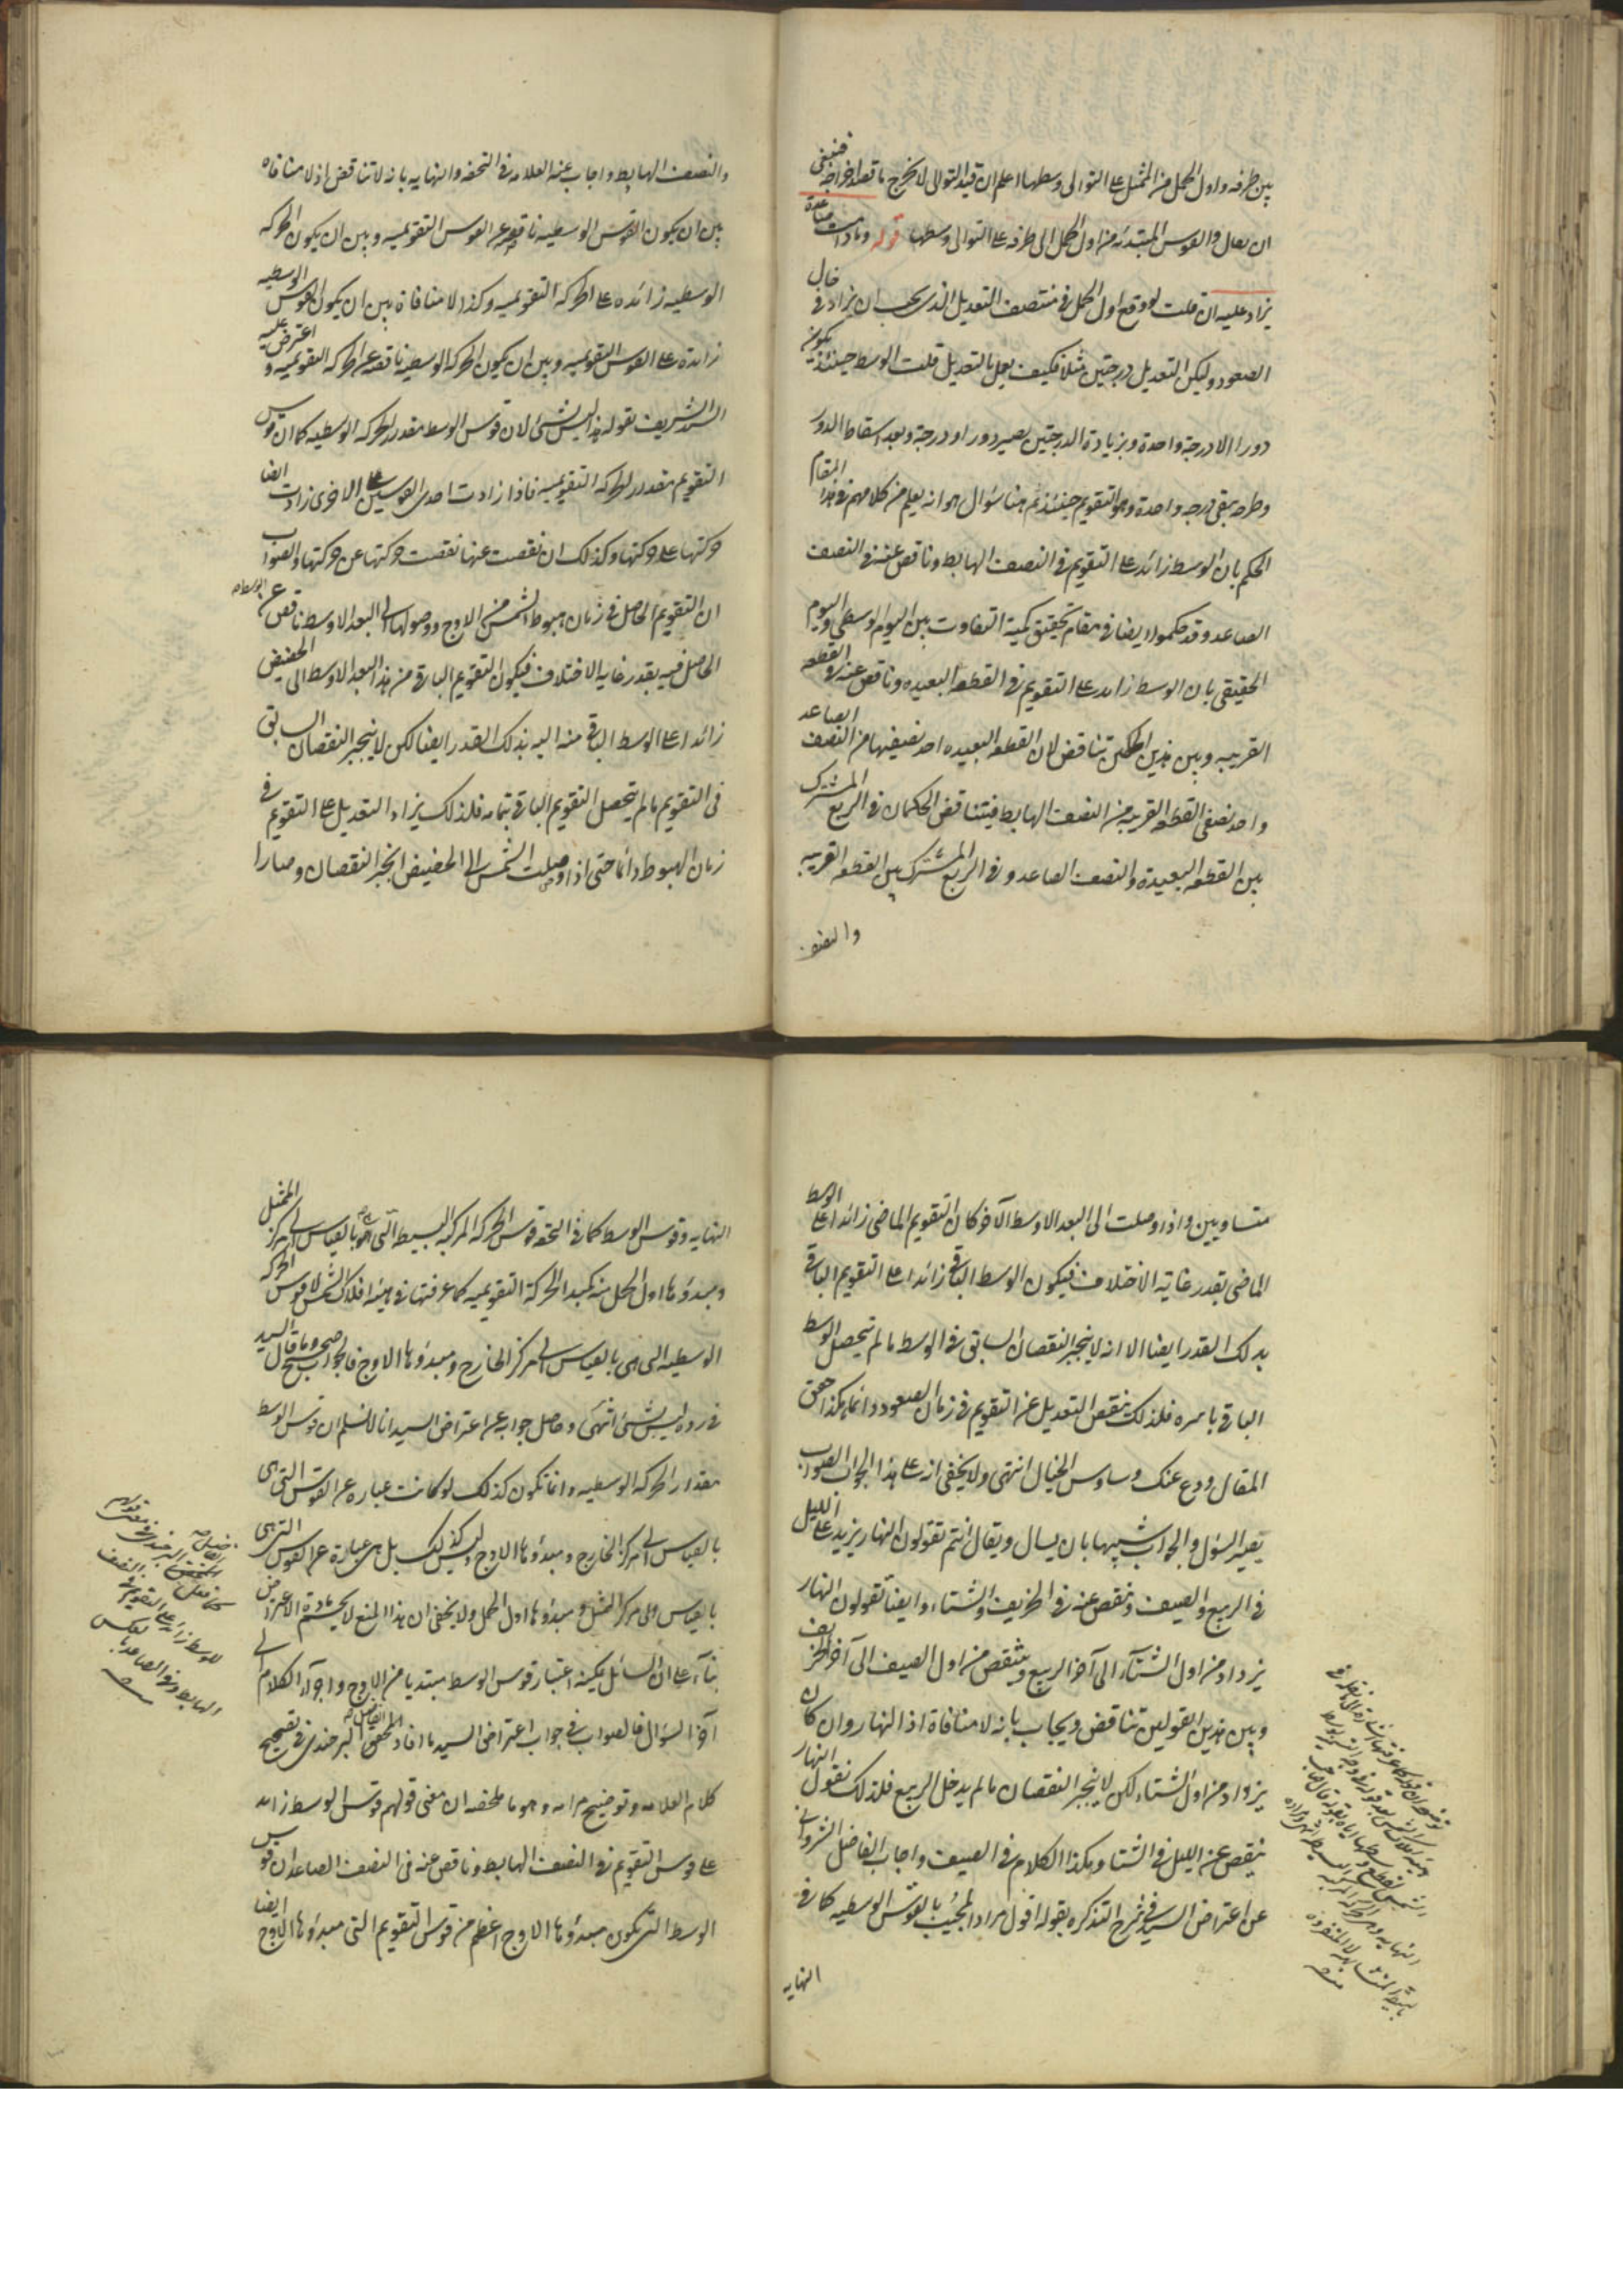 بين طرفه واول الحمل من الممثل على التوالى وسطها اعلم ان قيد التوالى لا يخرج ما قصد اخراجه فينبغى
ان يقال والقوس المبتدئه من اول الحمل الى طرفه على التوالى وسطها قوله وما دامت صاعدة
يزاد عليه ان قلت لو وقع اول الحمل فى منتصف التعديل الذى يجب ان يزاد فى حال
الصعود وليكن التعديل درجتين مثلا فكيف يعمل بالتعديل قلت الوسط حينئذ يكون
دورا الا درجة واحدة وبزيادة الدرجتين يصير دورا ودرجة وبعد اسقاط الدور
وطرحه يبقى درجه واحدة وهو التقويم حينئذ ثم هنا سؤال هو انه يعلم من كلامهم فى هذا المقام
الحكم بان الوسط زائد على التقويم فى النصف الهابط وناقص عنه فى النصف
الصاعد وقد حكموا ايضا فى مقام تحقيق كمية التفاوت بين اليوم الوسطى واليوم
الحقيقى بان الوسط زائد على التقويم فى القطعه البعيده وناقص عنه فى القطعه
القريبه وبين هذين الحكمين تناقض لان القطعه البعيده احد نصفيها من النصف الصاعد
واحد نصفى القطعه القريبه من النصف الهابط فيتناقض الحكمان فى الربع المشترك
بين القطعه البعيدة والنصف الصاعد وفى الربع المشترك بين القطعه القريبه
والنصف
والنصف الهابط واجاب عنه العلامه فى التحفه والنهايه بانه لا تناقض اذ لا منافاه
بين ان يكون القوس الوسطيه ناقصه عن القوس التقويميه وبين ان يكون الحركه
الوسطيه زائده على الحركه التقويميه وكذا لا منافاة بين ان يكون القوس الوسطيه
زائدة على القوس التقويميه وبين ان يكون الحركه الوسطيه ناقصه عن الحركه التقويميه واعترض عليه
السيد الشريف بقوله هذا ليس بشئ لان قوس الوسط مقدر للحركه الوسطيه كما ان قوس
التقويم مقدر للحركه التقويميه فاذا زادت احدى القوسين على الاخرى زادت ايضا
حركتها على حركتها وكذلك ان نقصت عنها نقصت حركتها عن حركتها والصواب
ان التقويم الحاصل فى زمان هبوط الشمس من الاوج ووصولها الى البعد الاوسط ناقص عن الوسط
الحاصل فيه بقدر غايه الاختلاف فيكون التقويم الباقى من هذا البعد الاوسط الى الحضيض
زائدا على الوسط الباقى منه اليه بذلك القدر ايضا لكن لا ينجبر النقصان السابق
فى التقويم ما لم يتحصل التقويم الباقى بتمامه فلذلك يزاد التعديل على التقويم فى
زمان الهبوط دائما حتى اذا وصلت الشمس الى الحضيض انجبر النقصان وصارا
متساويين واذا وصلت الى البعد الاوسط الآخر كان التقويم الماضى زائدا على الوسط
الماضى بقدر غاية الاختلاف فيكون الوسط الباقى زائدا على التقويم الباقى
بذلك القدر ايضا الا انه لا ينجبر النقصان السابق فى الوسط ما لم يتحصل الوسط
الباقى باسره فلذلك ينقص التعديل عن التقويم فى زمان الصعود دائما هكذا حقق
المقال ودع عنك وساوس الخيال انتهى ولا يخفى انه على هذا الجواب الصواب
يصير السؤل والجواب شبيها بان يسال ويقال انتم تقولون النهار يزيد على الليل
فى الربيع والصيف وينقص عنه فى الخريف والشتاء وايضا تقولون النهار
يزداد من اول الشتاء الى آخر الربيع وينتقص من اول الصيف الى آخر الخريف
وبين هذين القولين تناقض ويجاب بانه لا منافاة اذ النهار وان كان
يزداد من اول الشتاء لكن لا ينجبر النقصان ما لم يدخل الربيع فلذلك نقول النهار
ينقص عن الليل فى الشتا وهكذا الكلام فى الصيف واجاب الفاضل الشروانى
عن اعتراض السيد فى شرح التذكره بقوله اقول مراد المجيب بالقوس الوسطيه كما فى
النهايه
النهايه وقوس الوسط كما فى التحفه قوس الحركه المركبه البسيطه التى هى بالقياس الى مركز الممثل
ومبدؤها اول الحمل منه كمبدا الحركة التقويميه كما عرفتها فى هيئة افلاك الشمس لا قوس الحركه
الوسطيه التى هى بالقياس الى مركز الخارج ومبدؤها الاوج فالجواب صحيح وما قال السيد
فى رده ليس بشئ انتهى وحاصل جوابه عن اعتراض السيد انا لا نسلم ان قوس الوسط
مقدار الحركه الوسطيه وانما تكون كذلك لو كانت عباره عن القوس التى هى
بالقياس الى مركز الخارج ومبدؤها الاوج وليس كذلك بل هى عبارة عن القوس التى هى
بالقياس الى مركز الممثل ومبدؤها اول الحمل ولا يخفى ان هذا المنع لا يحسم مادة الاعتراض
بناء على ان السائل يمكنه اعتبار قوس الوسط مبتديا من الاوج واجراء الكلام الى
آخر السؤال فالصواب فى جواب اعتراض السيد ما افاد الفاضل المحقق البرجندى فى تصحيح
كلام العلامه وتوضيح مرامه وهو ما ملخصه ان معنى قولهم قوس الوسط زائد
على قوس التقويم فى النصف الهابط وناقص عنه فى النصف الصاعد ان قوس
الوسط التى يكون مبدؤها الاوج اعظم من قوس التقويم التى مبدؤها الاوج ايضا